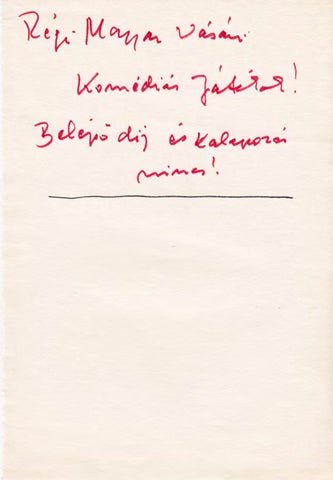 Régi Magyar Vásári
Komédiás Játékok!
Belépő dij és kalapozás
nincs!